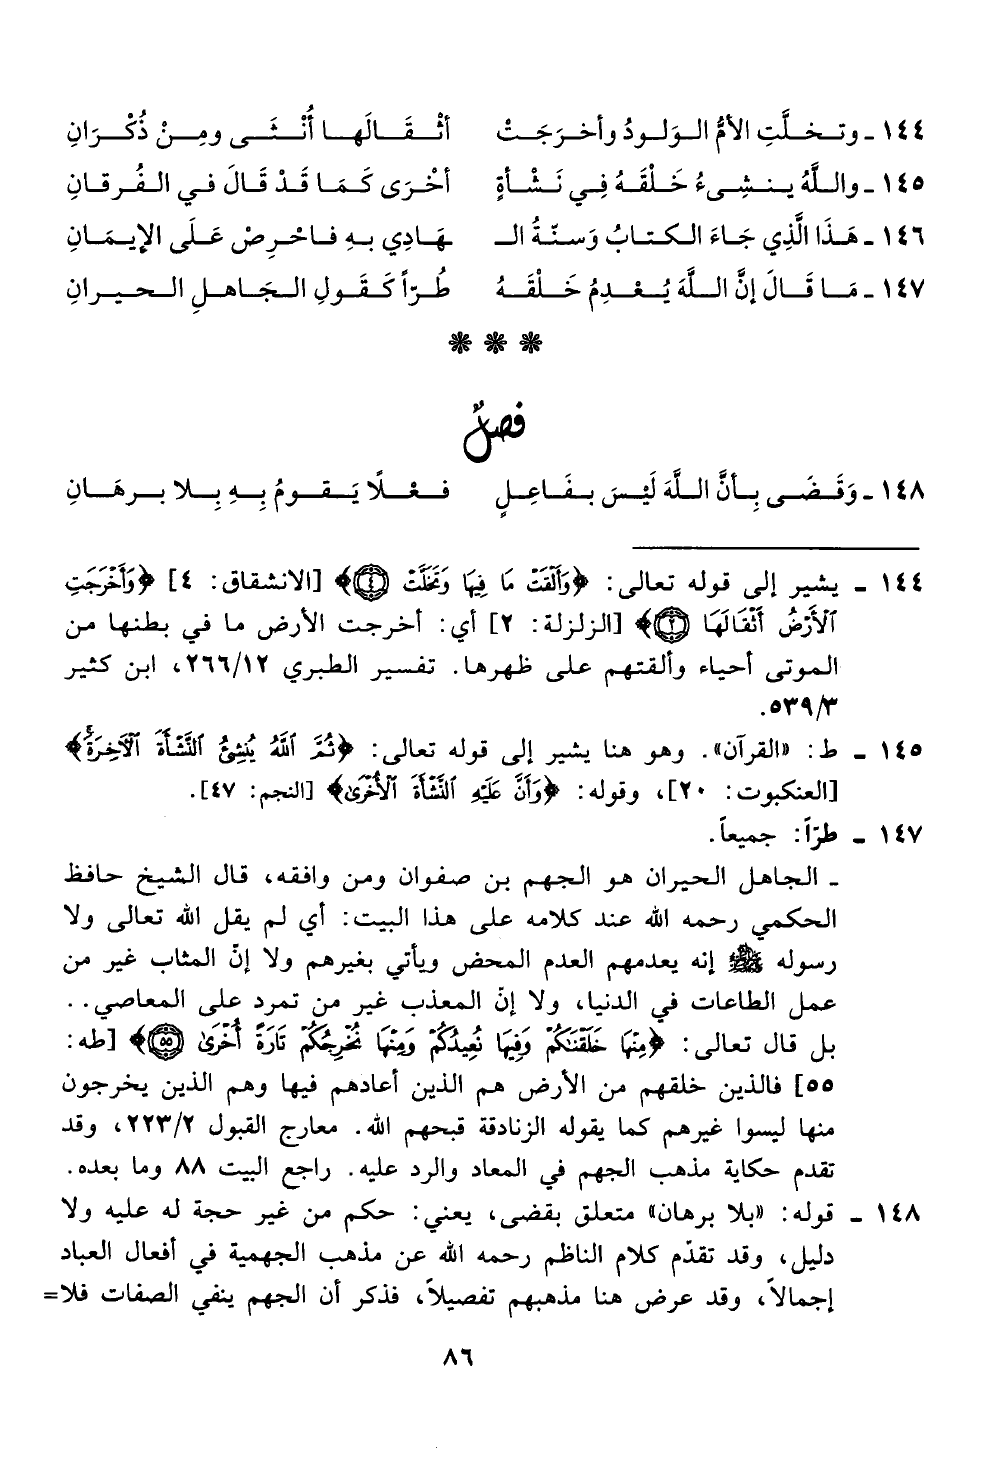 ١٤٤ ـ وتخلَّتِ الأمُّ الوَلودُ وأخرَجَتْ أثْقَالَها أُنْثَى ومِنْ ذُكْرَانِ
١٤٥ ـ واللَّهُ ينشِىءُ خَلْقَهُ فِي نَشْأةٍ أخْرَى كَمَا قَدْ قَالَ في الفُرقانِ
١٤٦ ـ هَذَا الَّذِي جَاءَ الكتابُ وَسنّةُ الـ ـهَادِي بهِ فاحْرِصْ عَلَى الإيمَانِ
١٤٧ ـ مَا قَالَ إنَّ اللَّهَ يُعْدِمُ خَلْقَهُ طُرّاً كَقَولِ الجَاهلِ الحيرانِ
❋ ❋ ❋
فصلٌ
١٤٨ ـ وَقَضَى بِأنَّ اللَّهَ لَيْسَ بفَاعِلٍ فعْلًا يَقومُ بِهِ بِلا برهَانِ
١٤٤ ـ يشير إلى قوله تعالى: ﴿وَأَلْقَتْ مَا فِيهَا وَتَخَلَّتْ ﴿٤﴾﴾ [الانشقاق: ٤] ﴿وَأَخْرَجَتِ
ٱلْأَرْضُ أَثْقَالَهَا ﴿٢﴾﴾ [الزلزلة: ٢] أي: أخرجت الأرض ما في بطنها من
الموتى أحياء وألقتهم على ظهرها. تفسير الطبري ٢٦٦/١٢، ابن كثير
٥٣٩/٣.
١٤٥ ـ ط: «القرآن». وهو هنا يشير إلى قوله تعالى: ﴿ثُمَّ ٱللَّهُ يُنشِئُ ٱلنَّشْأَةَ ٱلْآخِرَةَ﴾
[العنكبوت: ٢٠]، وقوله: ﴿وَأَنَّ عَلَيْهِ ٱلنَّشْأَةَ ٱلْأُخْرَىٰ﴾ [النجم: ٤٧].
١٤٧ ـ طرّاً: جميعاً.
ـ الجاهل الحيران هو الجهم بن صفوان ومن وافقه، قال الشيخ حافظ
الحكمي رحمه الله عند كلامه على هذا البيت: أي لم يقل الله تعالى ولا
رسوله ﷺ إنه يعدمهم العدم المحض ويأتي بغيرهم ولا إنّ المثاب غير من
عمل الطاعات في الدنيا، ولا إنّ المعذب غير من تمرد على المعاصي..
بل قال تعالى: ﴿مِنْهَا خَلَقْنَٰكُمْ وَفِيهَا نُعِيدُكُمْ وَمِنْهَا نُخْرِجُكُمْ تَارَةً أُخْرَىٰ ﴿٥٥﴾﴾ [طه:
٥٥] فالذين خلقهم من الأرض هم الذين أعادهم فيها وهم الذين يخرجون
منها ليسوا غيرهم كما يقوله الزنادقة قبحهم الله. معارج القبول ٢٢٣/٢، وقد
تقدم حكاية مذهب الجهم في المعاد والرد عليه. راجع البيت ٨٨ وما بعده.
١٤٨ ـ قوله: «بلا برهان» متعلق بقضى، يعني: حكم من غير حجة له عليه ولا
دليل، وقد تقدّم كلام الناظم رحمه الله عن مذهب الجهمية في أفعال العباد
إجمالاً، وقد عرض هنا مذهبهم تفصيلاً، فذكر أن الجهم ينفي الصفات فلا=
٨٦